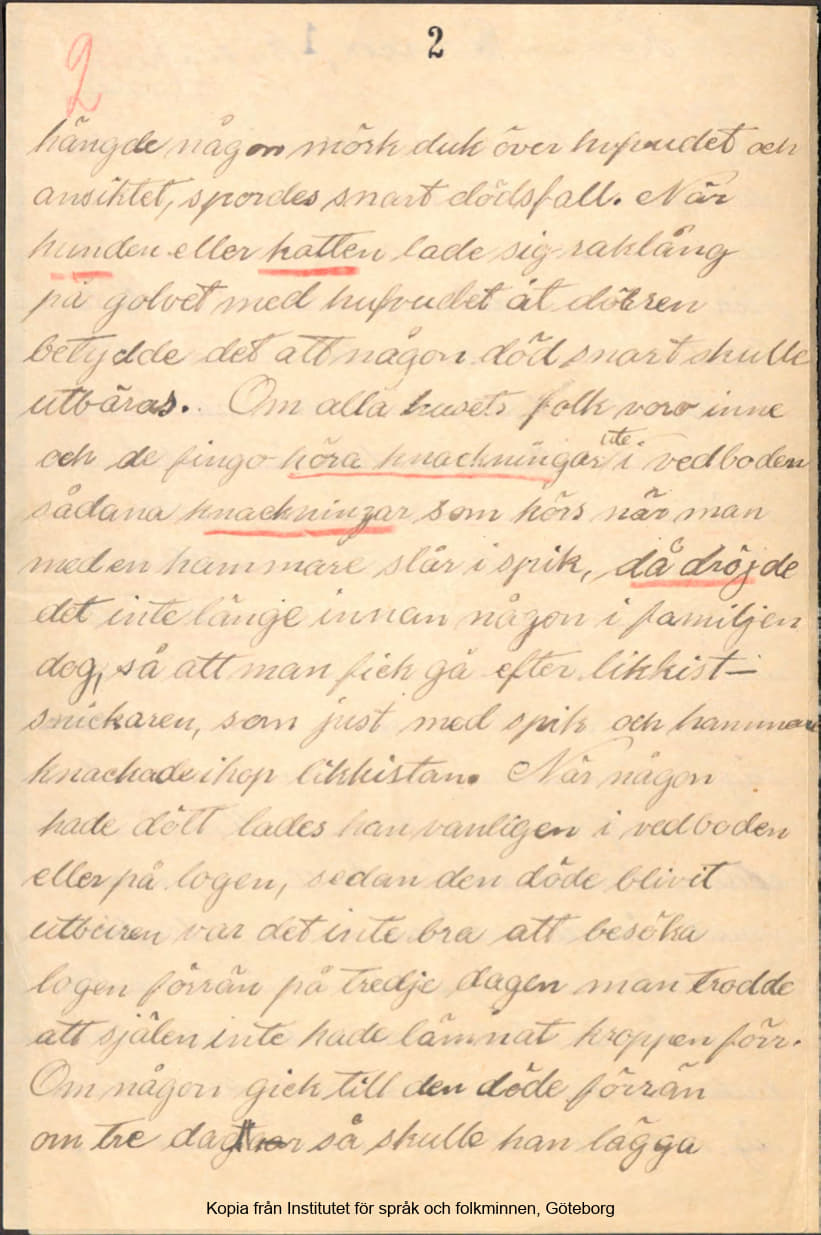 2
2
hängde någon mörk duk över hufvudet och
ansiktet, spordes snart dödsfall. När
hunden eller katten lade sig raklång
på golvet med hufvudet åt dörren
betydde det att någon död snart skulle
utbäras. Om alla husets folk voro inne
och de fingo höra knackningar ute i vedboden
sådana knackningar som hörs när man
med en hammare slår i spik, då dröjde
det inte länge innan någon i familjen
dog, så att man fick gå efter likkist-
snickaren, som just med spik och hammare
knackade ihop likkistan. När någon
hade dött lades han vanligen i vedboden
eller på logen, sedan den döde blivit
utburen var det inte bra att besöka
logen förrän på tredje dagen man trodde
att själen inte hade lämnat kroppen förr.
Om någon gick till den döde förrän
om tre dagar så skulle han lägga
Kopia från Institutet för språk och folkminnen, Göteborg